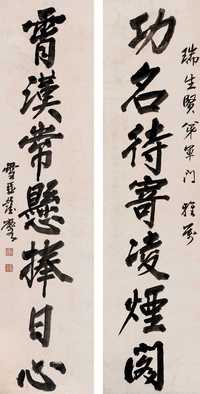 瑞生賢弟軍門 雅
功名待寄凌煙閣
霄漢常懸捧日心
雪琴彭玉麐